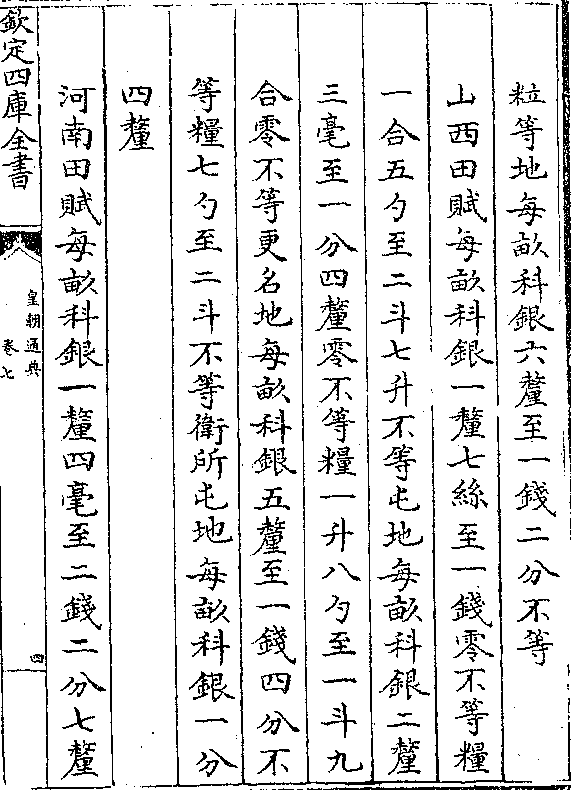 粒等地每畝科銀六釐至一錢二分不等
山西田賦每畝科銀一釐七絲至一錢零不等糧
一合五勺至二斗七升不等屯地每畝科銀二釐
三毫至一分四釐零不等糧一升八勺至一斗九
合零不等更名地每畝科銀五釐至一錢四分不
等糧七勺至二斗不等衛所屯地每畝科銀一分
四釐
河南田賦每畝科銀一釐四毫至二錢二分七釐
欽定四庫全書
皇朝通典
卷七
四